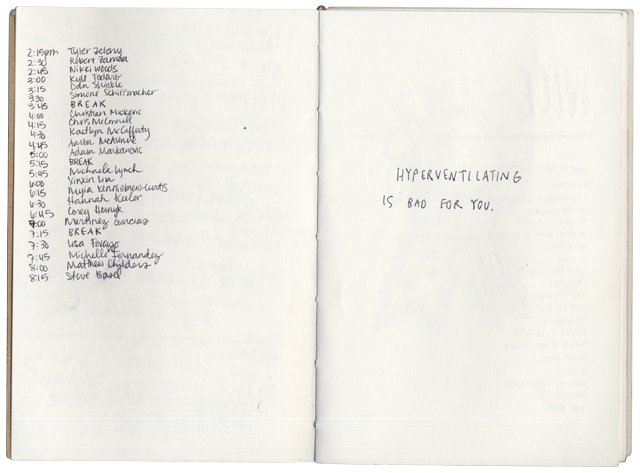 2:15pm Tyler Zeleny
2:30 Robert Zamora
2:45 Nikki Woods
3:00 Kyle Todaro
3:15 Dan Shinkle
3:30 Simone Schiffmacher
3:45 BREAK
4:00 Christian Mickovic
4:15 Chris McConnell
4:30 Kaitlyn McCafferty
4:45 Aaron
5:00 Adam Markanovic
5:15 BREAK
5:45 Michaela Lynch
6:00 Yinxin Liu
6:15 Kennebrew-Curtis
6:30 Hannah Keeler
6:45 Corey
7:00 Martinez Garcias
7:15 BREAK
7:30 Lisa
7:45 Michelle Fernandez
8:00 Matthew Childers
8:15 Steve Basel
HYPERVENTILATING
IS BAD FOR YOU.